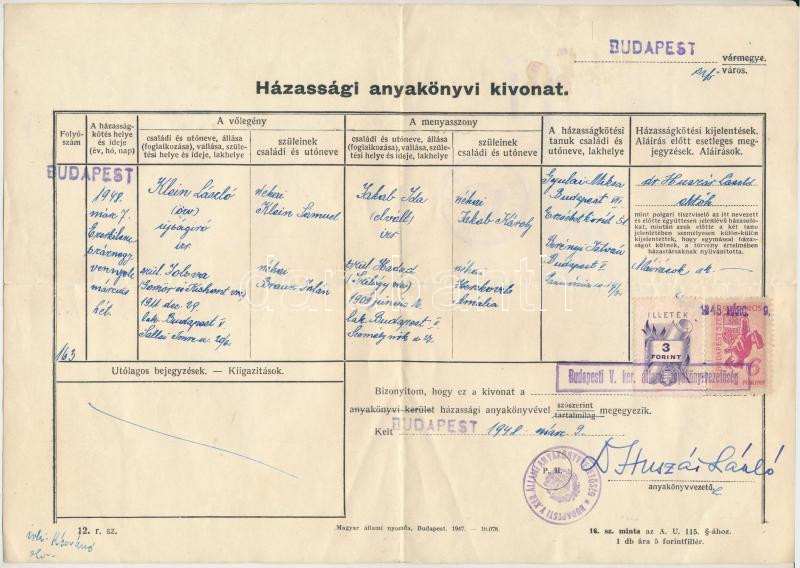 BUDAPEST
vármegye.
város.
Házassági anyakönyvi kivonat.
Folyó-
szám
A házasság-
kötés helye
és ideje
(év, hó, nap)
A vőlegény
családi és utóneve, állása
(foglalkozása), vallása, szüle-
tési helye és ideje, lakhelye
szüleinek
családi és utóneve
A menyasszony
családi és utóneve, állása
(foglalkozása), vallása, szüle-
tési helye és ideje, lakhelye
szüleinek
családi és utóneve
A házasságkötési
tanuk családi és
utóneve, lakhelye
Házasságkötési kijelentések.
Aláírás előtt esetleges meg-
jegyzések. Aláírások.
BUDAPEST
163
1948.
márc 7.
Ezerkilenc-
száznegy-
vennyolc
március
hét.
Klein László
(özv.)
újságíró
izr
szül. Tolova
(Gömör és Kishont vm)
1911 dec 29.
lak. Budapest V
Sallai Imre u. 20/a.
néhai
Klein Samuel
néhai
Braun Ilián
Jakab Ida
(elvált)
izr
szül. Hadad
(Szilágy vm)
1909 június
lak. Budapest V
Személynök u.
néhai
Jakab Károly
néhai
Amália
Gyulai
Budapest VI
Erzsébet körút
Berényi
Budapest V
dr. Huszár László
mint polgári tisztviselő az itt nevezett
és előtte együttesen jelenlévő házasu-
lókat, miután azok előtte a két tanu
jelenlétében személyesen külön-külön
kijelentették, hogy egymással házas-
ságot kötnek, a törvény értelmében
házastársaknak nyilvánította.
Aláírások
darabanth
ILLETÉK
3
FORINT
1948 MÁRC. 9.
BUDAPEST
6
FORINT
Budapesti V. ker. állami anyakönyvvezetőség
Utólagos bejegyzések. — Kiigazítások.
Bizonyítom, hogy ez a kivonat a
anyakönyvi kerület házassági anyakönyvével szószerint
tartalmilag megegyezik.
Kelt BUDAPEST 1948. márc 9.
P. H.
BUDAPESTI V. KER. ÁLLAMI ANYAKÖNYVVEZETŐSÉG
Dr Huszár László
anyakönyvvezető
12. r. sz.
Magyar állami nyomda, Budapest. 1947. — 10.078.
16. sz. minta az A. U. 115. §-ához.
1 db ára 5 forintfillér.